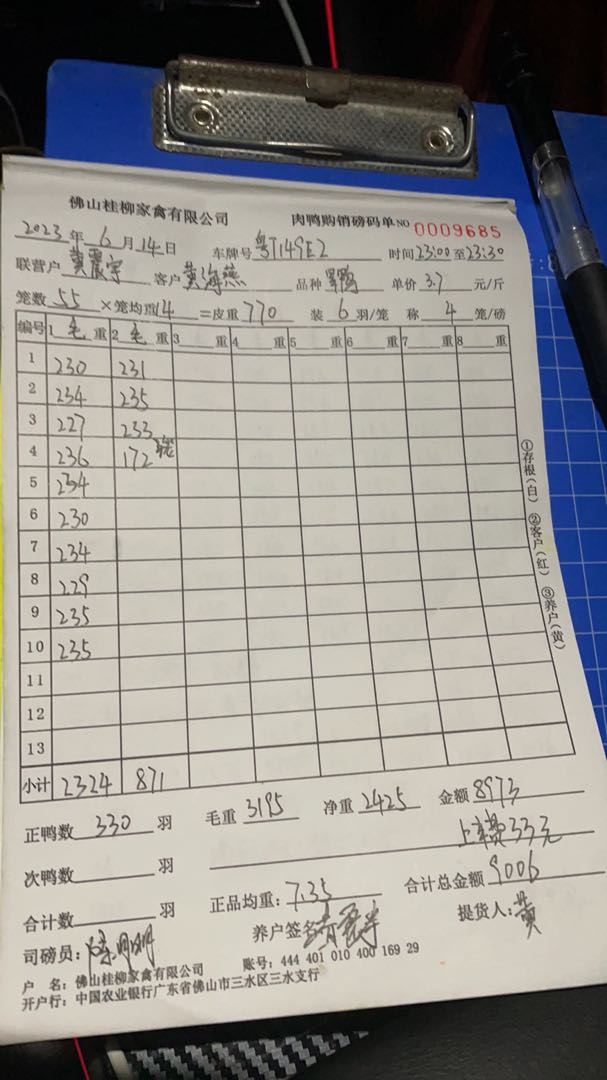 佛山桂柳家禽有限公司 肉鸭购销磅码单 NO 0009685
2023年6月14日 车牌号 粤T149E2 时间23:00至23:30
联营户 黄震宇 客户 黄海燕 品种 单价 3.7 元/斤
笼数 55 ×笼均重14 =皮重 770 装 6 羽/笼 称 4 笼/磅
编号 1 毛 重 2 毛 重 3 重 4 重 5 重 6 重 7 重 8 重
1 230 231
2 234 235
3 227 233
4 236 172
5 234
6 230
7 234
8 229
9 235
10 235
11
12
13
小计 2324 871
①存根(白) ②客户(红) ③养户(黄)
正鸭数 330 羽 毛重 3195 净重 2425 金额 8973
上车费33元
次鸭数 羽
合计数 羽 正品均重: 7.35 合计总金额 9006
司磅员: 养户签名 提货人: 黄
户 名: 佛山桂柳家禽有限公司 账号: 444 401 010 400 169 29
开户行: 中国农业银行广东省佛山市三水区三水支行